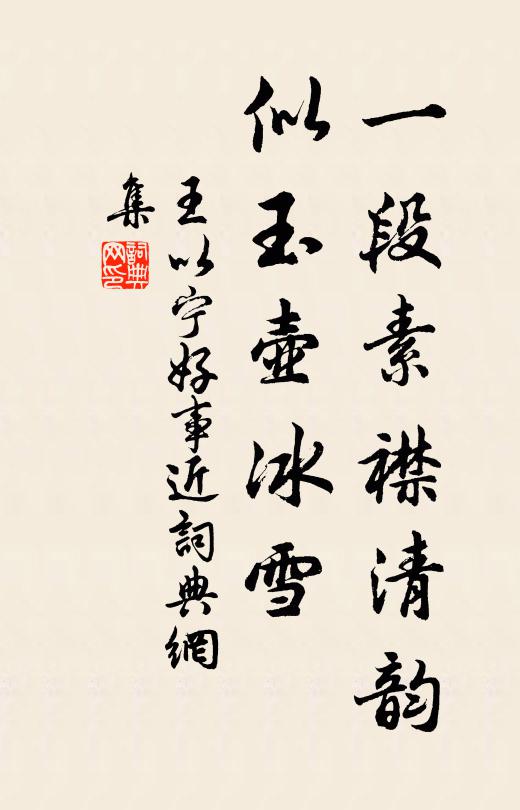 一段素襟清韵
似玉壺冰雪
王以宁好事近詞典網
集
詞典网印